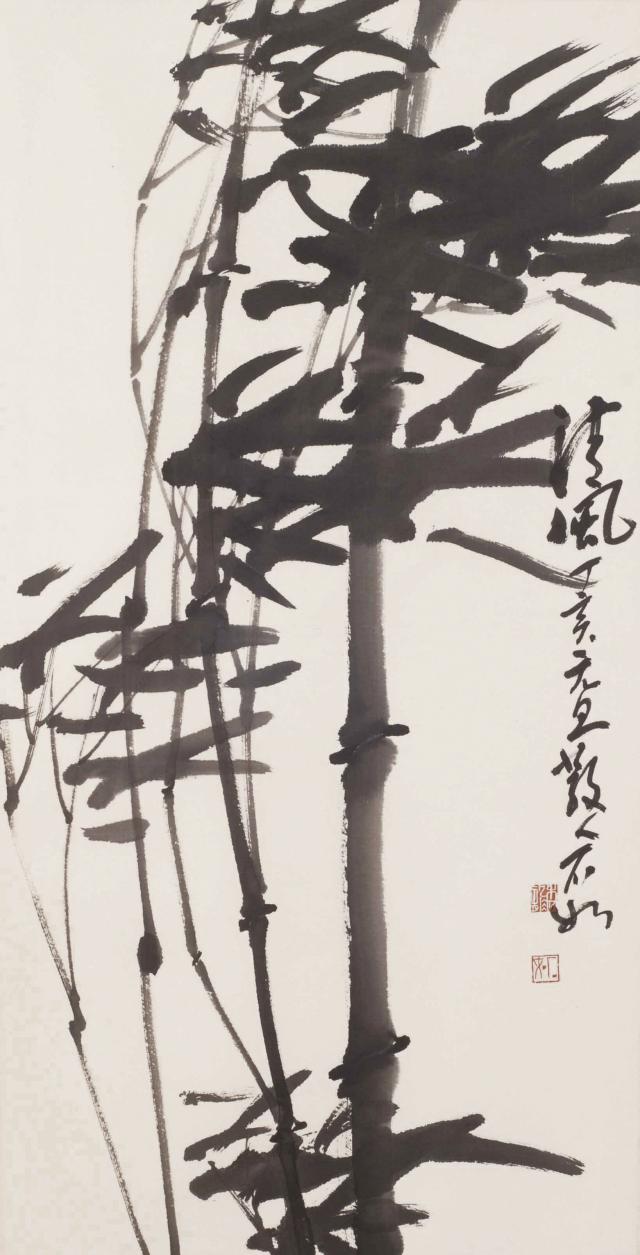 清風 丁亥元旦 散人石如